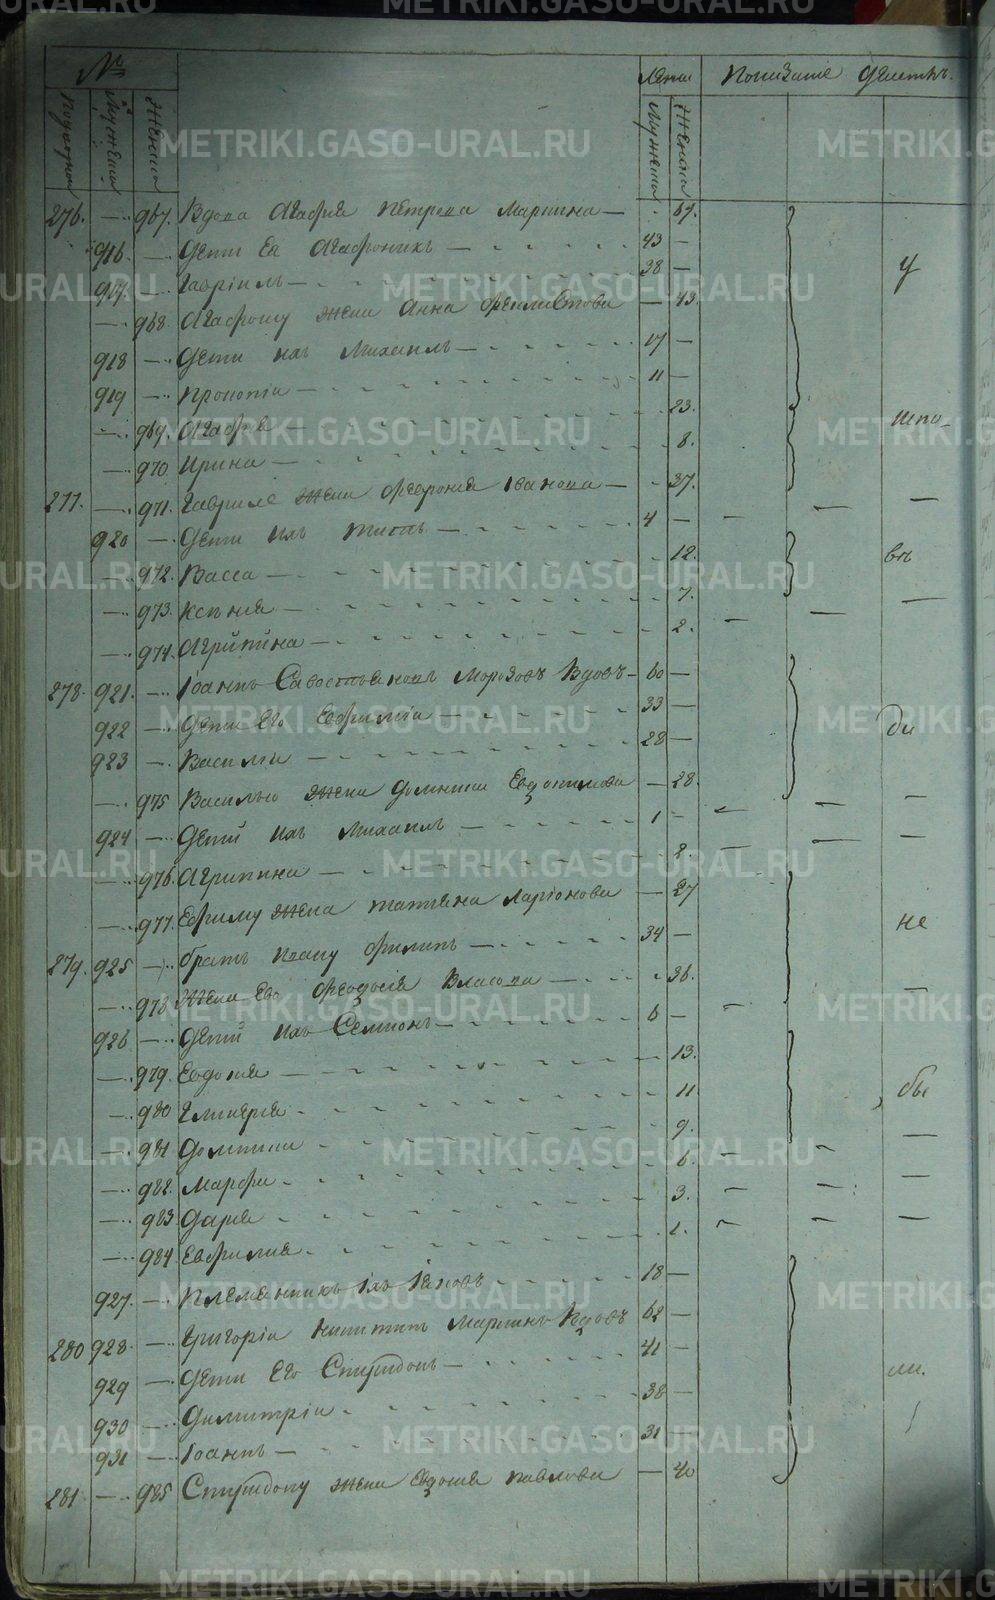 №
Лета
Показаніе
Мужеска
Женска
Мужеска
Женска
276. — 967. Вдова Агафья Петрова Марьина — 67.
916. — Дети Ея Агафоникъ — 43 —
917. — Гавріилъ — 38 —
— 968 Агафону жена Анна Феклистова — 43.
у
918 — дети ихъ Михаилъ — 17 —
919 — Прокопіи — 11 —
— 969. Агафья — 23.
испо_
— 970 Ирина — 8.
277. — 971. Гавриле жена Феврония Іванова — 37.
920 — дети ихъ Титъ — 4 —
въ
— 972. Васса — 12.
— 973. Ксения — 7.
— 974. Агрипина — 2.
278. 921. — Іоаннъ Савостьяновъ Морозовъ Вдовъ — 60 —
922 — дети Его Ефимъ — 33 —
ди
923 — Василіи — 28 —
— 975 Василью жена Домника Евдокимова — 28.
924 — дети ихъ Михаилъ — 1 —
— 976. Агрипина — 2.
— 977. Ефиму жена Татьяна Ларіонова — 27
не
279. 925 — братъ Ивану Филипъ — 34 —
— 978 Жена Ево Феодосія Власова — 36.
926 — дети ихъ Семионъ — 6 —
— 979. Евдокия — 13.
бы
— 980 Гликерія — 11
— 981 Домника — 9.
— 982. Марфа — 6.
— 983 Дарья — 3.
— 984 Евфимия — 1.
927. — Племянникъ Ихъ Іаковъ — 18 —
280 928. — Григоріи Никитинъ Марьинъ Вдовъ 62 —
929 — дети Его Спиридонъ — 41 —
ли.
930 — Димитріи — 38 —
931 — Іоаннъ — 31
281 — 985 Спиридону жена Евдокия Павлова — 40
METRIKI.GASO-URAL.RU